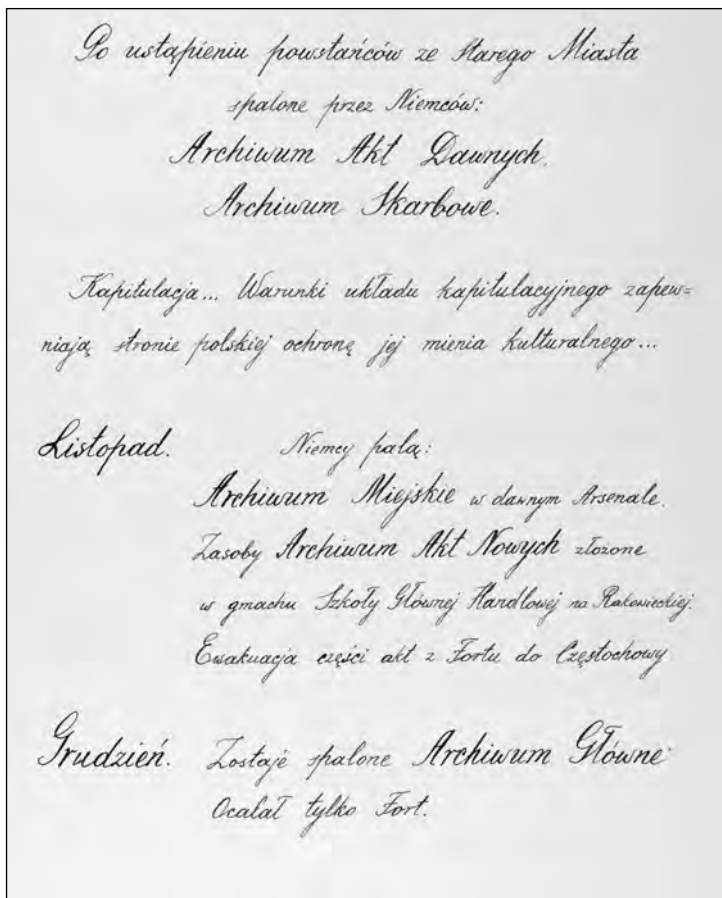 Po ustąpieniu powstańców ze Starego Miasta
spalone przez Niemców:
Archiwum Akt Dawnych.
Archiwum Skarbowe.
Kapitulacja... Warunki układu kapitulacyjnego zapew=
niają stronie polskiej ochronę jej mienia kulturalnego...
Listopad. Niemcy palą:
Archiwum Miejskie w dawnym Arsenale.
Zasoby Archiwum Akt Nowych złożone
w gmachu Szkoły Głównej Handlowej na Rakowieckiej.
Ewakuacja części akt z Fortu do Częstochowy
Grudzień. Zostaje spalone Archiwum Główne
Ocalał tylko Fort.